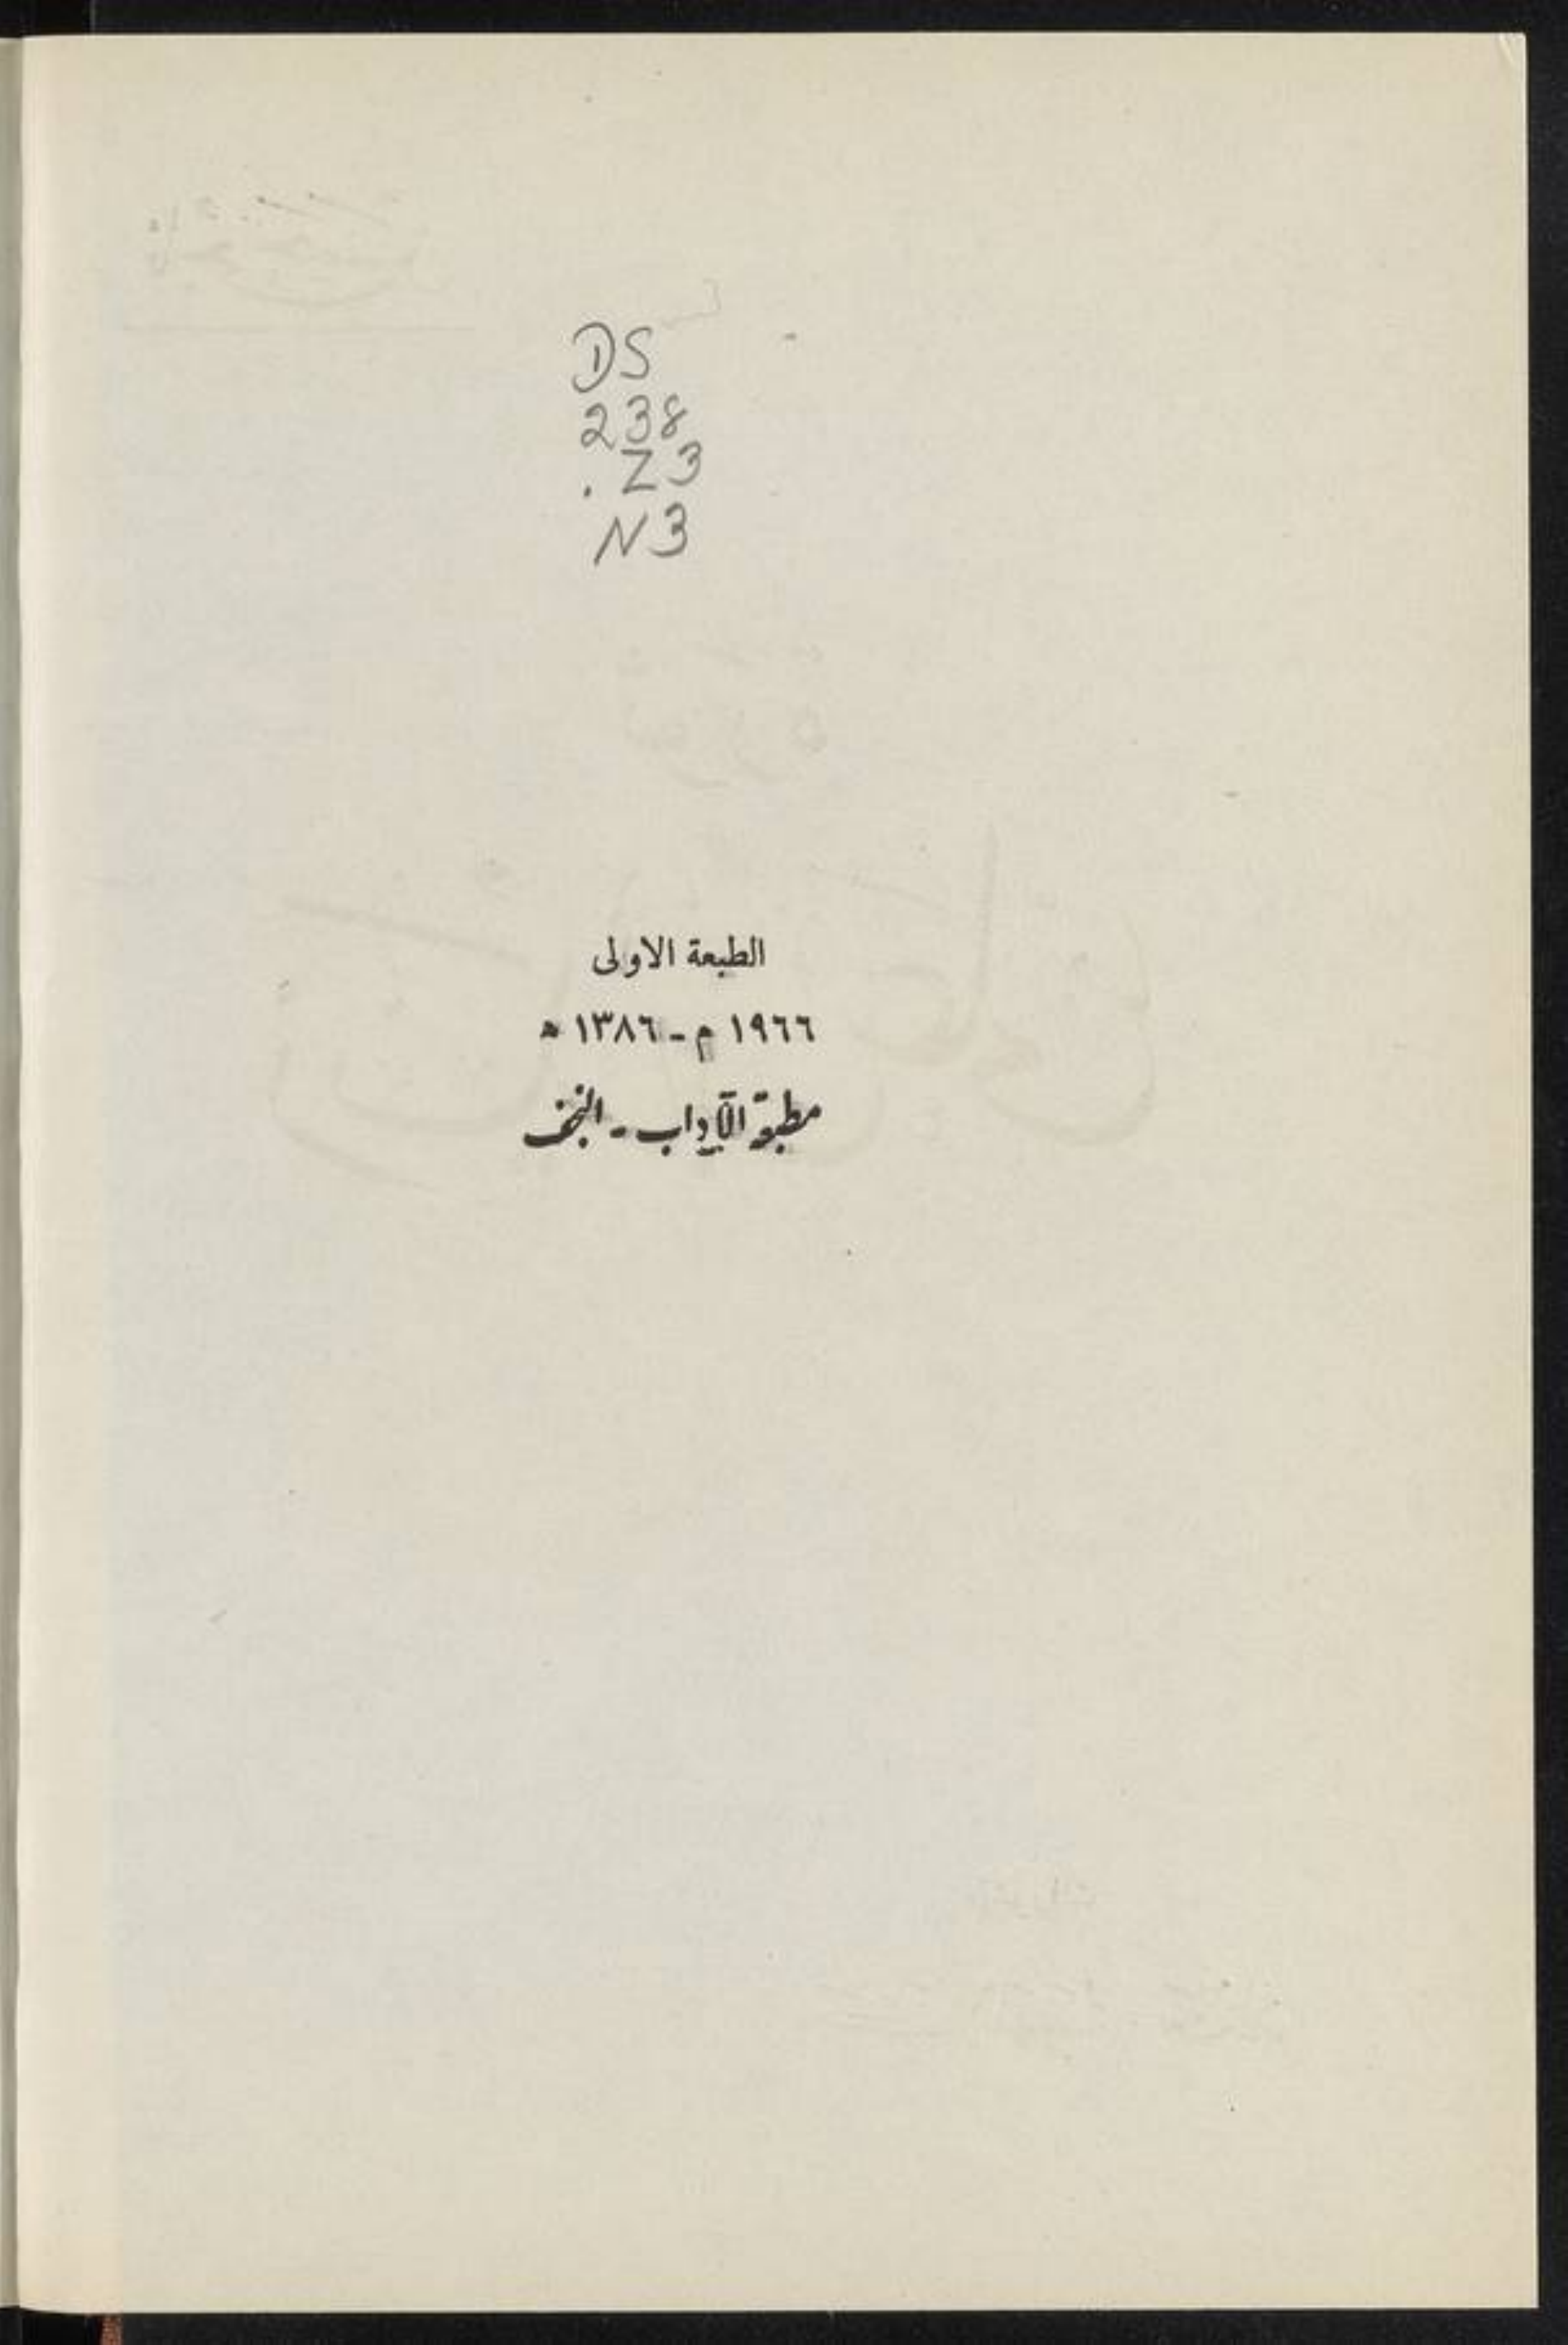 DS
238
.Z3
N3
الطبعة الاولى
١٩٦٦ م - ١٣٨٦ ه
مطبعة الآداب - النجف